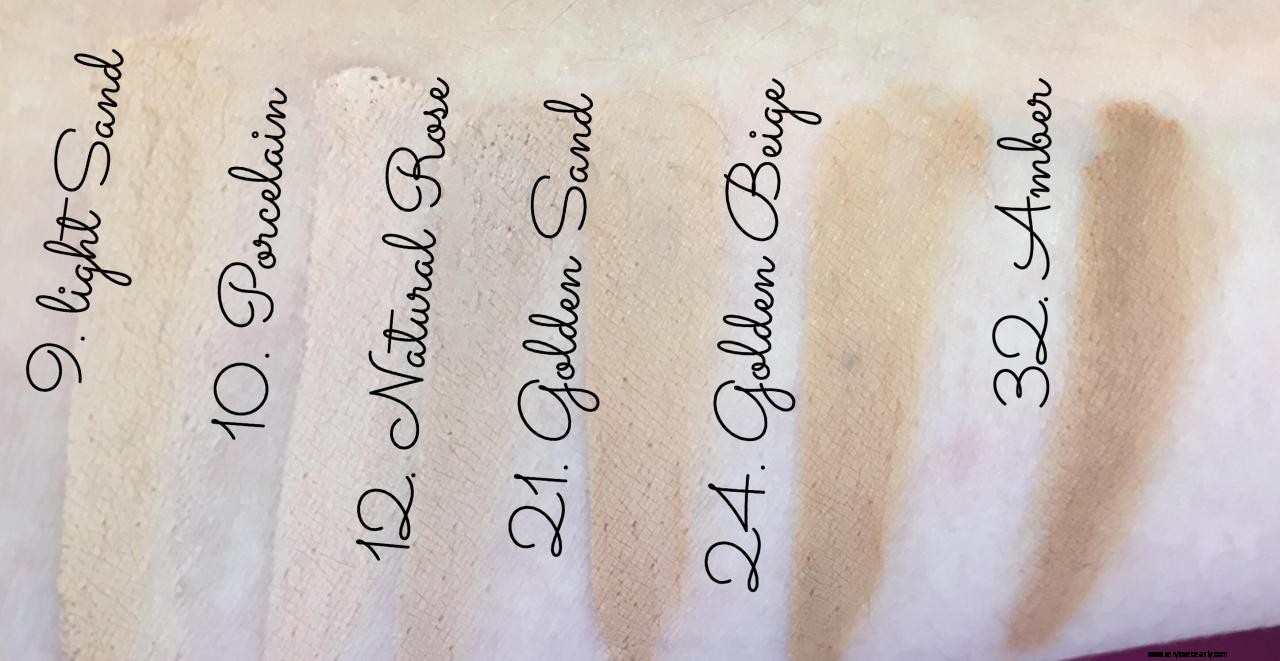 9. light Sand
10. Porcelain
12. Natural Rose
21. Golden Sand
24. Golden Beige
32. Amber